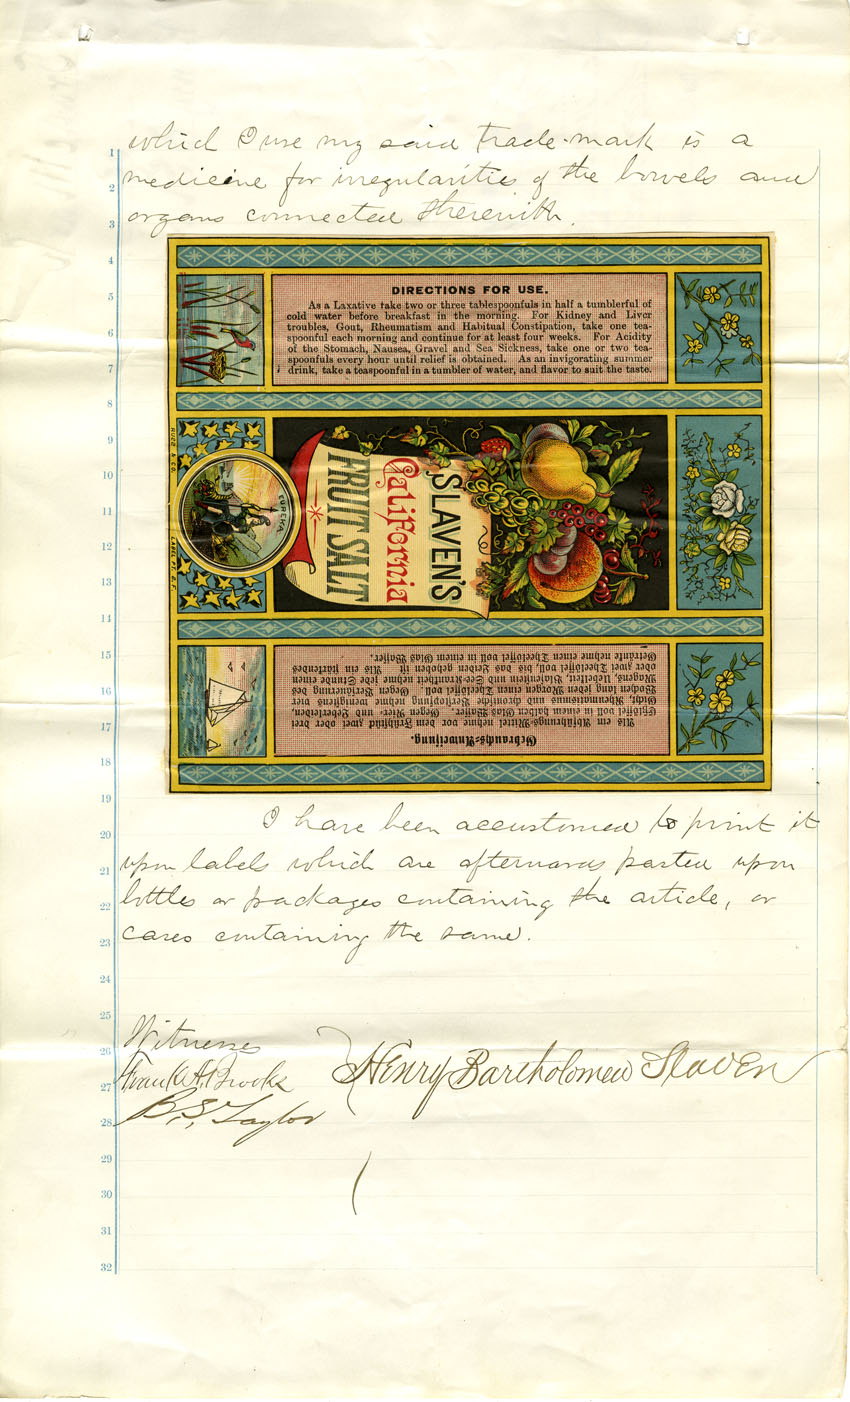 which I use my said trade-mark is a
medicine for irregularities of the bowels and
organs connected therewith.
DIRECTIONS FOR USE.
As a Laxative take two or three tablespoonfuls in half a tumblerful of
cold water before breakfast in the morning. For Kidney and Liver
troubles, Gout, Rheumatism and Habitual Constipation, take one tea-
spoonful each morning and continue for at least four weeks. For Acidity
of the Stomach, Nausea, Gravel and Sea Sickness, take one or two tea-
spoonfuls every hour until relief is obtained. As an invigorating summer
drink, take a teaspoonful in a tumbler of water, and flavor to suit the taste.
EUREKA
SLAVEN'S
California
FRUIT SALT
LABEL PT. S. F.
Gebrauchs-Anweisung.
Als ein Abführungs-Mittel nehme vor dem Frühstück zwei oder drei
Eßlöffel voll in einem halben Glas Wasser. Gegen Nier- und Leberleiden,
Gicht, Rheumatismus und chronische Verstopfung nehme wenigstens vier
Wochen lang jeden Morgen einen Theelöffel voll. Gegen Versäuerung des
Magens, Uebelkeit, und See-Krankheit nehme jede Stunde einen
oder zwei Theelöffel voll, bis das gehoben ist. Als ein
Getränke nehme einen Theelöffel voll in einem Glas Wasser.
I have been accustomed to print it
upon labels which are afterwards pasted upon
bottles or packages containing the article, or
cases containing the same.
Witnesses
Frank A. Brooks
Henry Bartholomew Slaven
B. S. Taylor
1
2
3
4
5
6
7
8
9
10
11
12
13
14
15
16
17
18
19
20
21
22
23
24
25
26
27
28
29
30
31
32